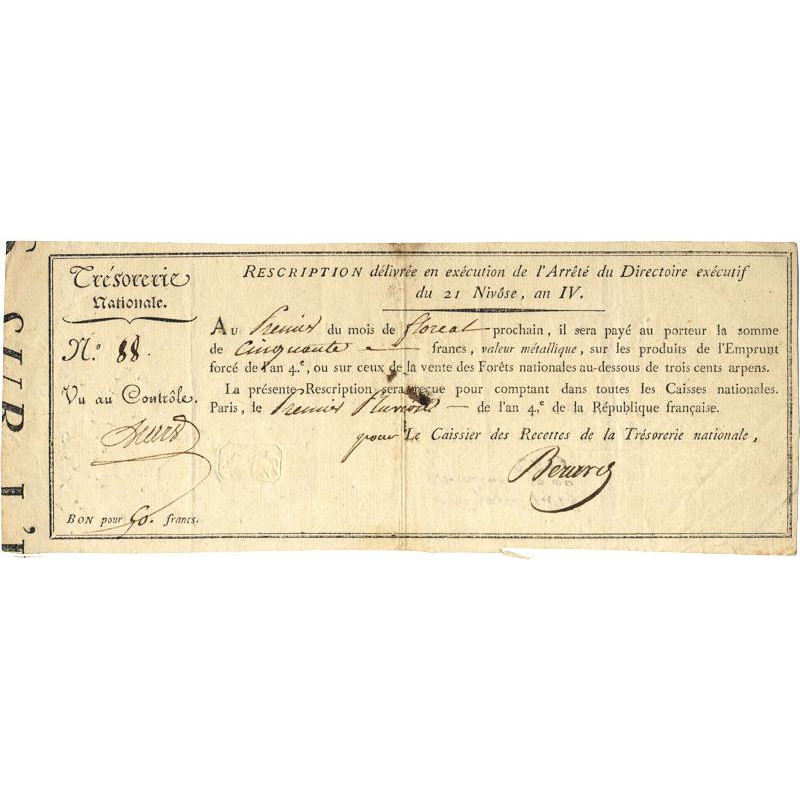 SUR L'
Trésorerie
Nationale.
N.º 88.
Vu au Contrôle.
BON pour 50. francs.
RESCRIPTION délivrée en exécution de l'Arrêté du Directoire exécutif
du 21 Nivôse, an IV.
AU Premier du mois de floreal prochain, il sera payé au porteur la somme
de Cinquante francs, valeur métallique, sur les produits de l'Emprunt
forcé de l'an 4.e, ou sur ceux de la vente des Forêts nationales au-dessous de trois cents arpens.
La présente Rescription sera reçue pour comptant dans toutes les Caisses nationales.
Paris, le Premier Pluviose — de l'an 4.e de la République française.
pour Le Caissier des Recettes de la Trésorerie nationale,